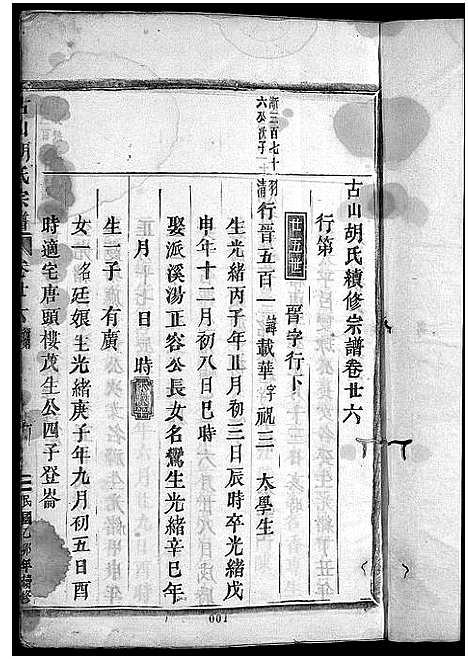 古山胡氏續修宗譜卷廿六
行第
廿五世
晉字行下
浙三百七十羽
六公次子
清行晉五百一諱載華字祝三 太學生
生光緒丙子年正月初三日辰時卒光緒戊
申年十二月初八日巳時
娶派溪湯正容公長女名鴛生光緒辛巳年
正月 日 時
生一子 有廣
女一名廷娘生光緒庚子年九月初五日酉
時適宅唐頭樓茂生公四子登崙
古山胡氏宗譜 卷廿六
民國乙卯年續修
001